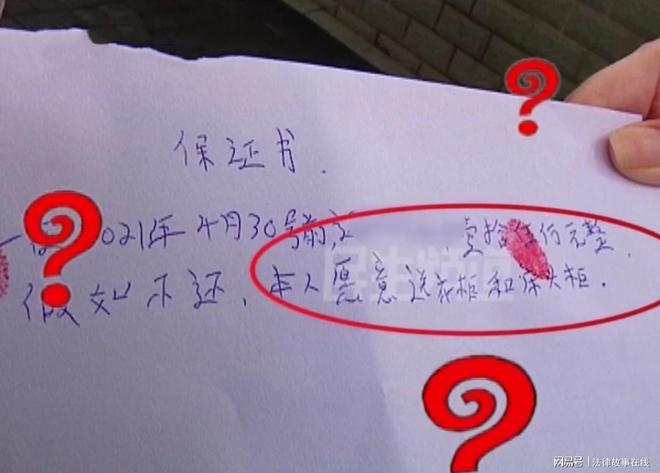 保证书.
2021年4月30号前还 壹拾 仟元整.
假如不还、本人愿意送衣柜和床头柜.
网易号 | 法律故事在线